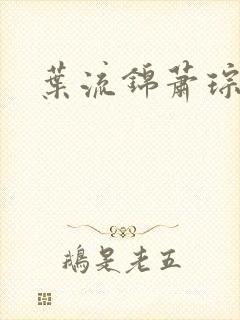 葉流錦蕭琮
鵝是老五